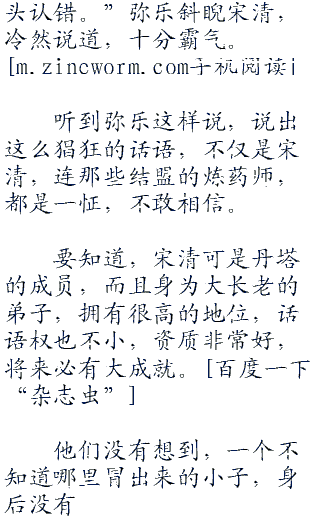 头认错。”弥乐斜睨宋清，
冷然说道，十分霸气。
[m.zincworm.com手机阅读i
听到弥乐这样说，说出
这么猖狂的话语，不仅是宋
清，连那些结盟的炼药师，
都是一怔，不敢相信。
要知道，宋清可是丹塔
的成员，而且身为大长老的
弟子，拥有很高的地位，话
语权也不小，资质非常好，
将来必有大成就。[百度一下
“杂志虫”]
他们没有想到，一个不
知道哪里冒出来的小子，身
后没有